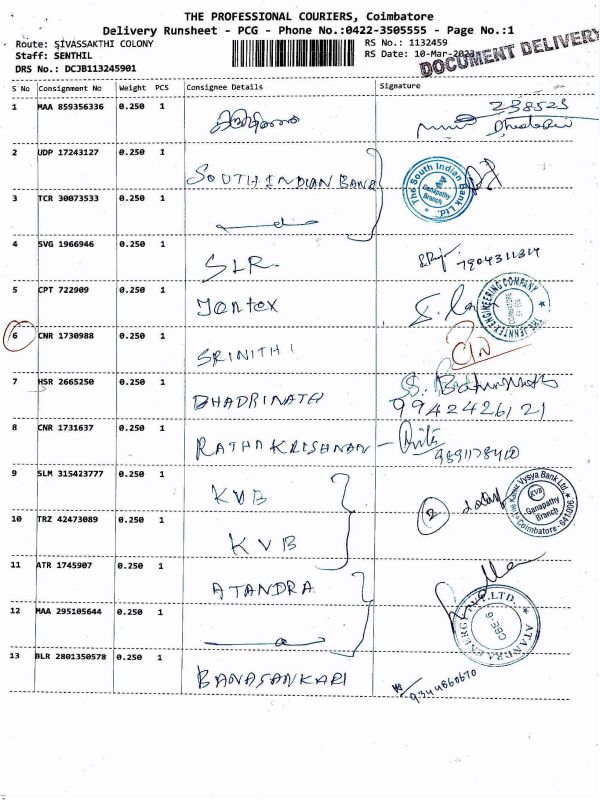 THE PROFESSIONAL COURIERS, Coimbatore
Delivery Runsheet - PCG - Phone No.:0422-3505555 - Page No.:1
Route: SIVASSAKTHI COLONY RS No.: 1132459
Staff: SENTHIL RS Date: 10-Mar-2023
DOCUMENT DELIVERY
DRS No.: DCJB113245901
S No Consignment No Weight PCS Consignee Details Signature
1 MAA 859356336 0.250 1 238523
2 UDP 17243127 0.250 1 SOUTH INDIAN BANK
The South Indian Bank Ltd. Ganapathy Branch
3 TCR 30073533 0.250 1
4 SVG 1966946 0.250 1 SLR.
5 CPT 722909 0.250 1 Jontex
THE JENNTEX ENGINEERING COMPANY
6 CNR 1730988 0.250 1 SRINITHI
7 HSR 2665250 0.250 1 BHADRINATH
9942426121
8 CNR 1731637 0.250 1 RATHNKRISHNAN
9 SLM 315423777 0.250 1 KVB
The Karur Vysya Bank Ltd. KVB Ganapathy Branch Coimbatore - 641006
10 TRZ 42473089 0.250 1 KVB 2
11 ATR 1745907 0.250 1 ATANDRA
12 MAA 295105644 0.250 1
ATANDRA ENERGY LTD.
13 BLR 2801350578 0.250 1 BANASANKARI
9344860670